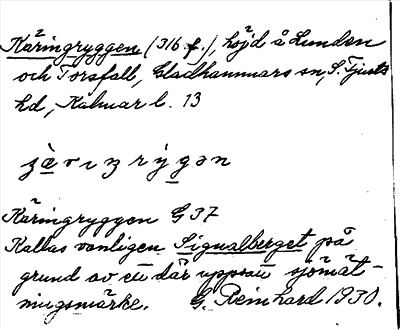 Käringryggen (316 f.), höjd å Lunden
och Torsfall, Gladhammars sn, S. Tjusts
hd, Kalmar l. 13
Käringryggen G 37
Kallas vanligen Signalberget på
grund av ett där uppsatt sjömät-
ningsmärke. G. Reinhard 1930.